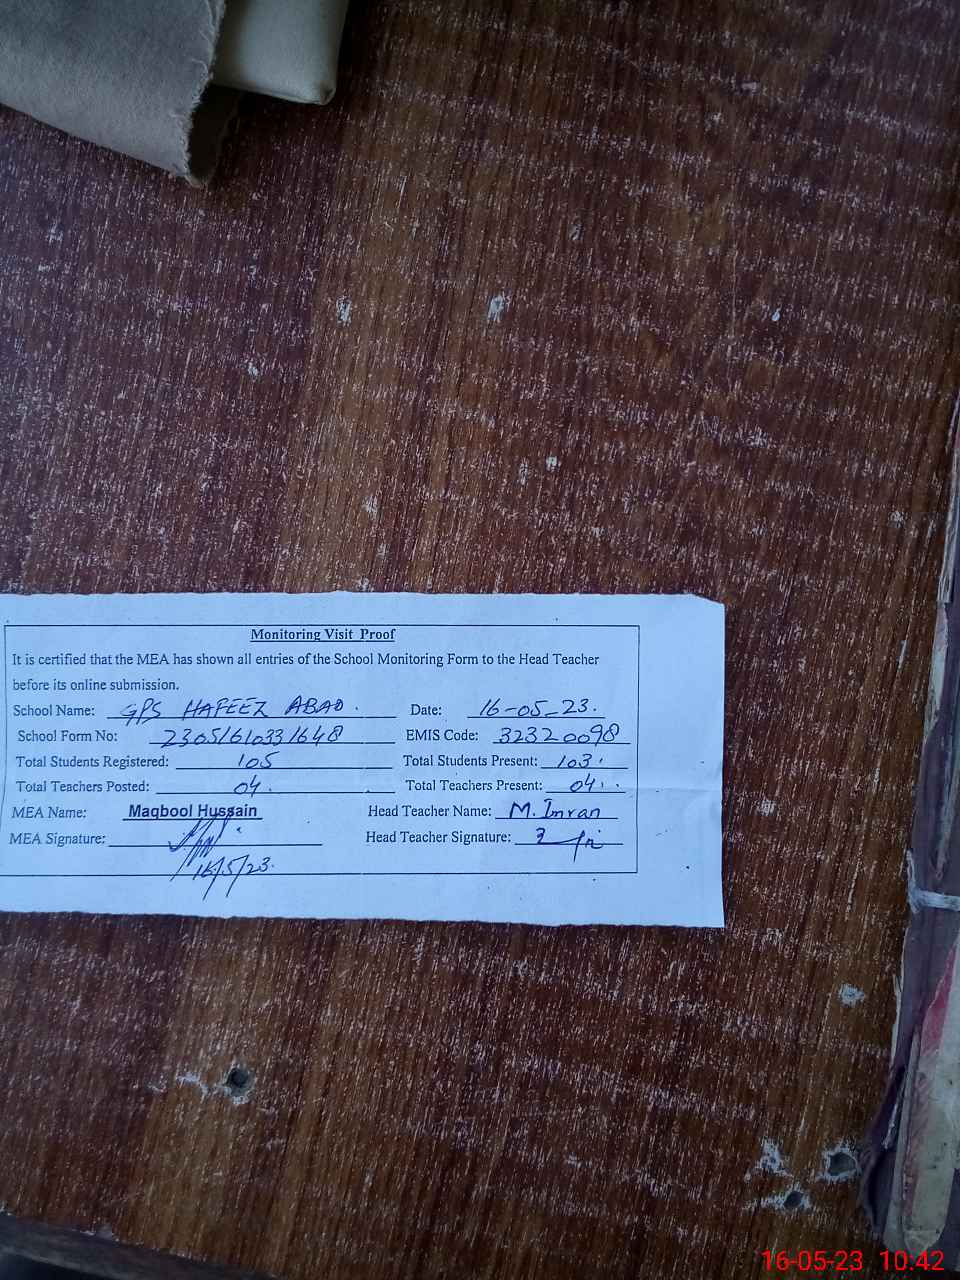 Monitoring Visit Proof
It is certified that the MEA has shown all entries of the School Monitoring Form to the Head Teacher
before its online submission.
School Name: GPS HAFEEZ ABAD. Date: 16-05-23.
School Form No: 23051610331648 EMIS Code: 32320098
Total Students Registered: 105 Total Students Present: 103.
Total Teachers Posted: 04. Total Teachers Present: 04..
MEA Name: Maqbool Hussain Head Teacher Name: M. Imran
MEA Signature: Head Teacher Signature:
16/5/23.
16-05-23 10:42